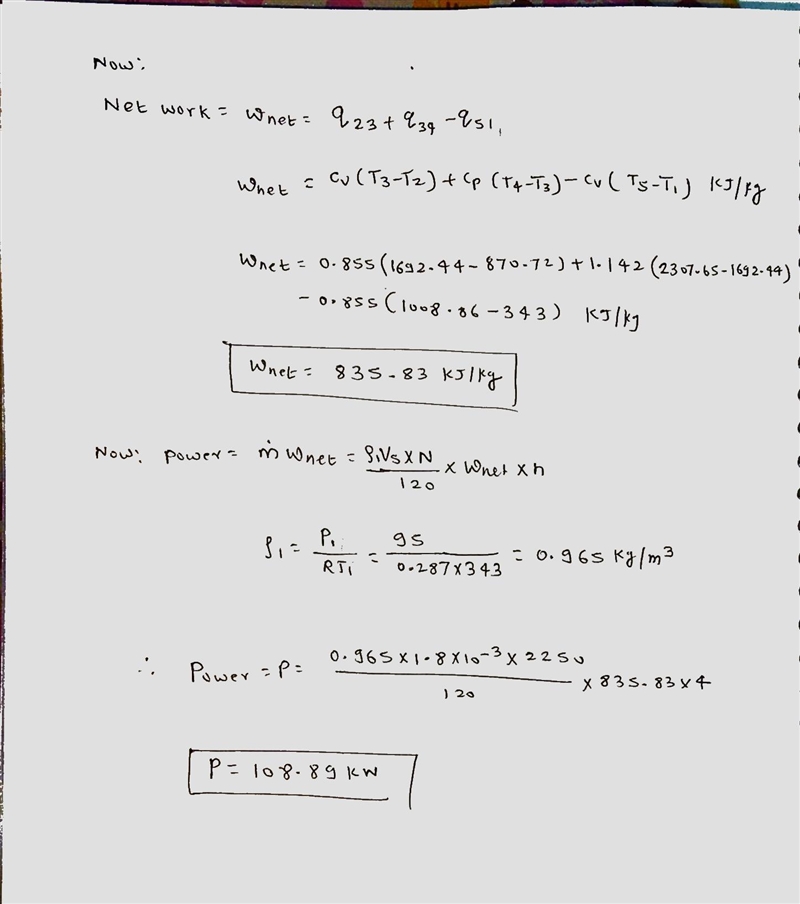 Now:
Net work = Wnet = q23 + q34 - q51,
Wnet = Cv (T3-T2) + Cp (T4-T3) - Cv ( T5-T1) KJ/kg
Wnet = 0.855 (1692.44 - 870.72) + 1.142 (2307.65 - 1692.44)
- 0.855 (1008.86 - 343) KJ/kg
Wnet = 835.83 KJ/kg
Now: power = ṁ Wnet = ρ1VsXN / 120 x Wnet x n
ρ1 = P1 / RT1 = 95 / 0.287X343 = 0.965 Kg/m3
∴ Power = P = 0.965 X 1.8 X 10-3 X 2250 / 120 x 835.83 x 4
P = 108.89 KW